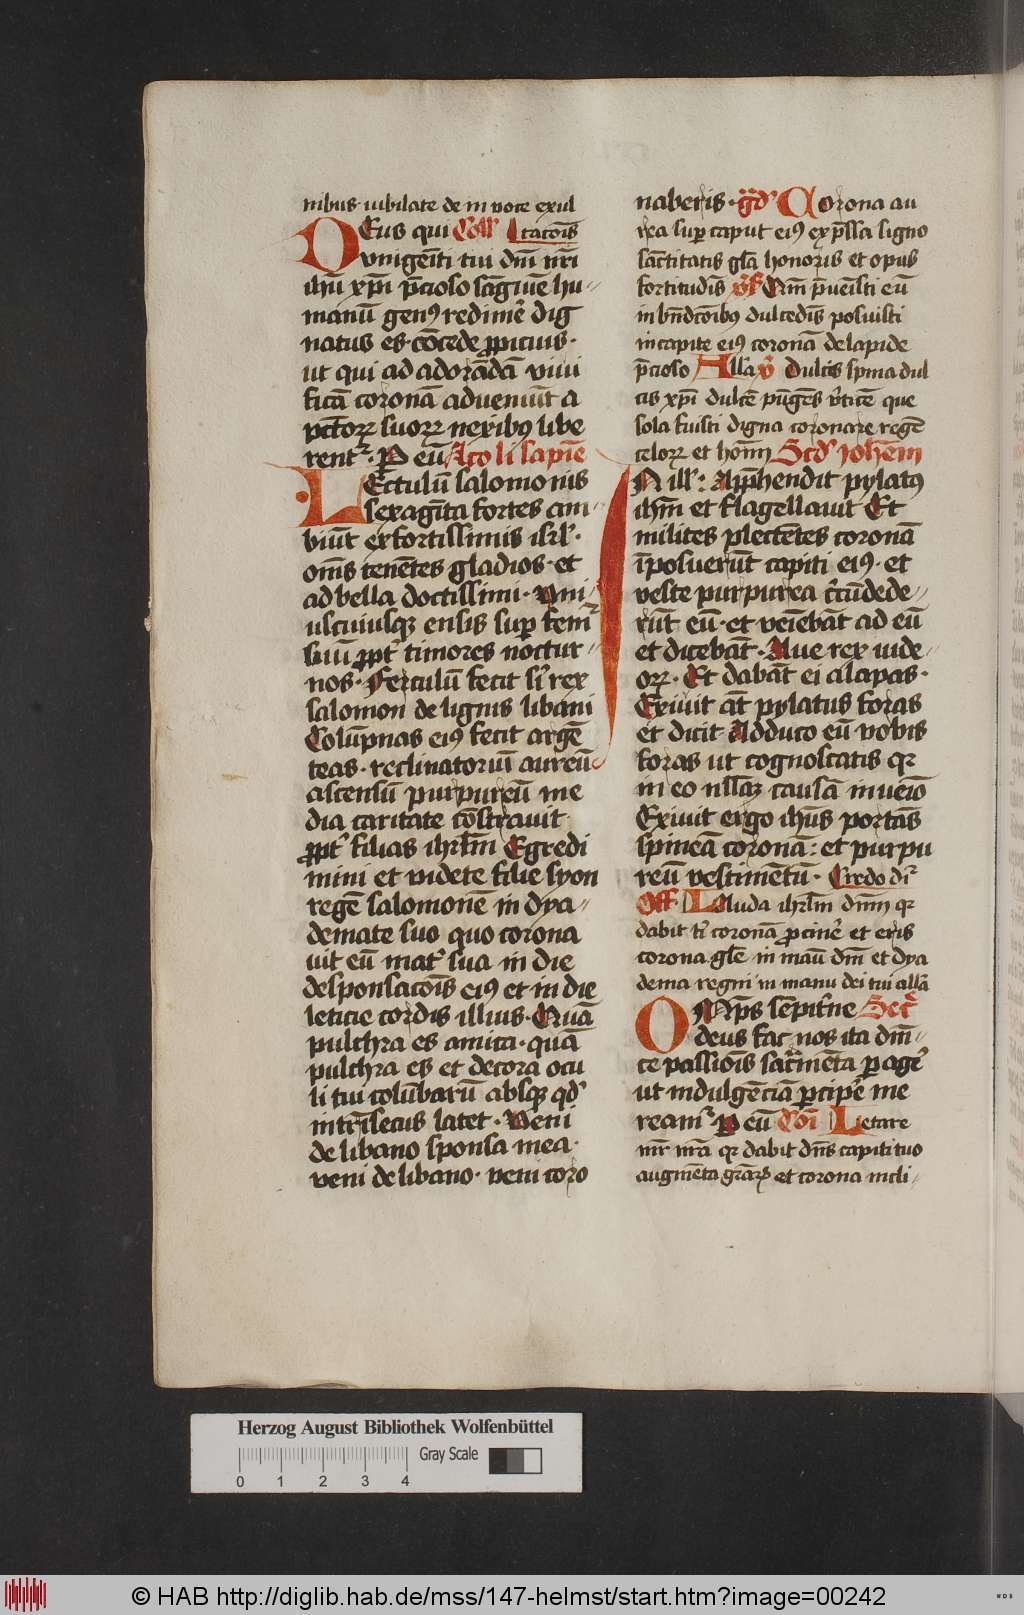 nibus· iubilate deo in voce exul
DEus qui Coll̅ t̅tac̅ois
vnigeni̅ti tui dn̅i nr̅i
ihū xp̅i p̅cioso sāguīe hu-
manū gen⁹ redimer̄ dig
natus es· cōcede ꝓpicius·
ut qui ad adorādā vivi
ficā coronā adveniūt a
pctōrꝝ suorꝝ nexibꝫ libe
rent᷑· P eū A̅ço li sapiē
LEctulū salomonis
sexagīta fortes am-
biūt ex fortissimis isrl̅·
om̅s tenētes gladios· et
ad bella doctissimi· Vni-
uscuiusqꝫ ensis suꝑ fem᷑
suū ꝓpt̅ timores noctur-
nos· Ferculū fecit s̅i rex
salomon de lignis libani
Colūpnas ei⁹ fecit argē
teas· reclinatoriū aureū
ascensū purpureū me
dia caritate cōstravit
ꝓpt̅ filias ihrl̅m Egredi
mini et videte filie syon
regē salomonē in dya-
demate suo quo corona
vit eū mat̅ sua in die
desponsac̅ois ei⁹ et in die
leticie cordis illius· Quā
pulchra es amica· quā
pulchra es et decora ocu
li tui colūbarū absqꝫ qd̅
intrīsecus latet· Veni
de libano sponsa mea·
veni de libano· veni coro
naberis· gd̅ Corona au
rea suꝑ caput ei⁹ exp̅ssa signo
sāctitatis gl̅a honoris et opus
fortitudīs v̅s Qm̅ p̅venisti eū
in bn̅dcōibꝫ dulcedīs posuisti
in capite ei⁹ coronā de lapide
p̅cioso All̅a v̅ Dulcis spina dul
cis xp̅i dulcē pūgēs v̅ticē que
sola fuisti digna coronare regē
celorꝝ et hom̅ Scd̅ Johēm
In ill̅: App̅hendit pylatꝫ
ihm̅ et flagellavit Et
milites plectētes coronā
īposuerūt capiti ei⁹· et
veste purpurea c̅cūdede-
rūt eū· et veiebāt ad eū
et dicebāt· Ave rex iude-
orꝝ· Et dabāt ei alapas·
Exivit āt pylatus foras
et dicit Adduco eū vobis
foras ut cognoscatis qꝛ
in eo nll̅aꝫ causā inveīo
Exivit ergo ihūs portās
spineā coronā: et purpu
reū vestimētū· Credo di̅
Off̅· LAuda ihrl̅m dn̅m qꝛ
dabit t̅i coronā ꝓ cinere̅ et eris
corona gl̅e in manū dn̅i et dya
dema regni in manu dei tui all̅a
OMp̅s sēpit̅ne Secr̅
deus fac nos ita dn̅i-
ce passiōis sacr̅mēta ꝑager̄
ut indulgēciā ꝑcipē me
reamr̅ P eū Cōi Letare
mr̅ nr̅a qꝛ dabit dn̅s capiti tuo
augmēta gr̅aꝝ et corona incli-
Herzog August Bibliothek Wolfenbüttel
Gray Scale
0 1 2 3 4
© HAB http://diglib.hab.de/mss/147-helmst/start.htm?image=00242